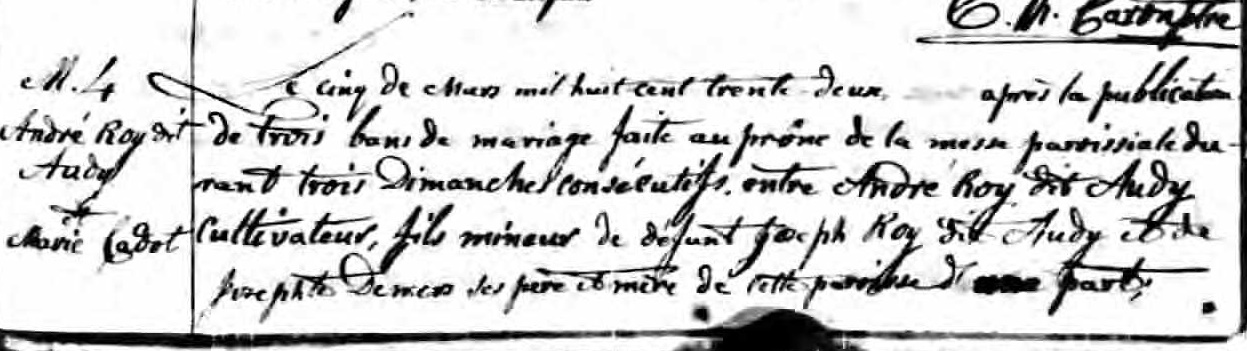 M. 4
André Roy dit
Audy
et
Marie Cadot
Le cinq de Mars mil huit cent trente-deux, après la publication
de trois bans de mariage faite au prône de la messe paroissiale du-
rant trois Dimanches consécutifs, entre André Roy dit Audy
Cultivateur, fils mineur de défunt Joseph Roy dit Audy et de
Josephte Demers ses père et mère de cette paroisse d'une part;